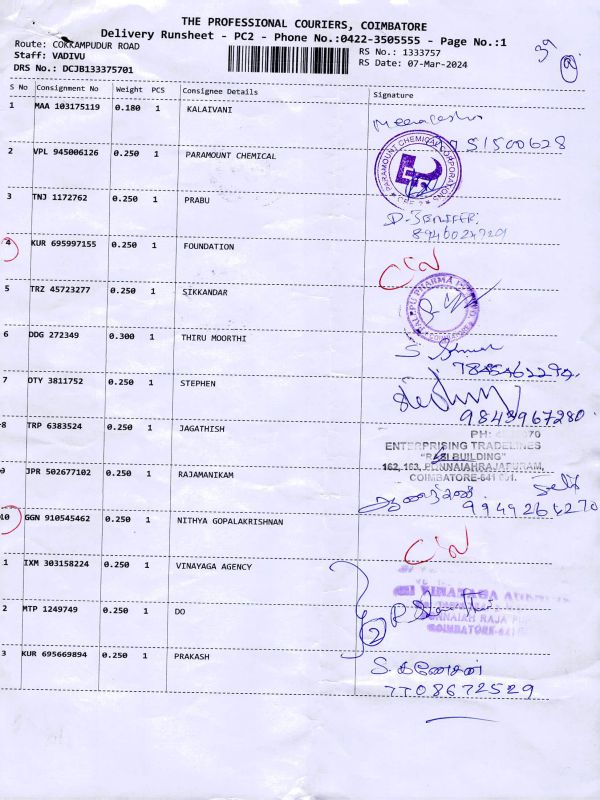 THE PROFESSIONAL COURIERS, COIMBATORE
Delivery Runsheet - PC2 - Phone No.:0422-3505555 - Page No.:1
Route: COKKAMPUDUR ROAD
Staff: VADIVU
DRS No.: DCJB133375701
RS No.: 1333757
RS Date: 07-Mar-2024
S No Consignment No Weight PCS Consignee Details Signature
1 MAA 103175119 0.180 1 KALAIVANI
51500628
2 VPL 945006126 0.250 1 PARAMOUNT CHEMICAL
PARAMOUNT CHEMICAL CORPORATION
CBE-2
3 TNJ 1172762 0.250 1 PRABU
D. JENIFER
4 KUR 695997155 0.250 1 FOUNDATION
5 TRZ 45723277 0.250 1 SIKKANDAR
6 DDG 272349 0.300 1 THIRU MOORTHI
7 DTY 3811752 0.250 1 STEPHEN
9843967280
8 TRP 6383524 0.250 1 JAGATHISH
ENTERPRISING TRADELINES
"RASI BUILDING"
162, 163, PONNAIAHRAJAPURAM,
COIMBATORE-641 001.
9 JPR 502677102 0.250 1 RAJAMANIKAM
Self
9944264270
10 GGN 910545462 0.250 1 NITHYA GOPALAKRISHNAN
1 IXM 303158224 0.250 1 VINAYAGA AGENCY
VINAYAGA
COIMBATORE-641
2 MTP 1249749 0.250 1 DO
2
3 KUR 695669894 0.250 1 PRAKASH
S. கணேசன்
7708672529